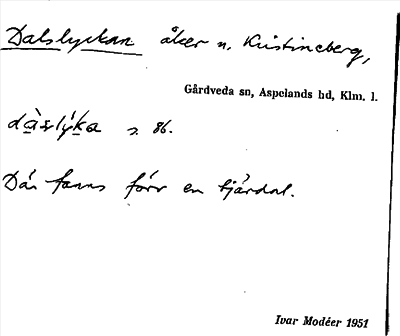 Dalslyckan åker u. Kristineberg,
Gårdveda sn, Aspelands hd, Klm. l.
s. 86.
Där fanns förr en tjärdal.
Ivar Modéer 1951